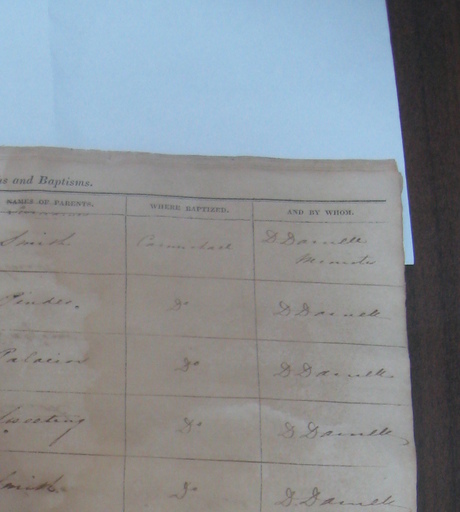 ns and Baptisms.
NAMES OF PARENTS. WHERE BAPTIZED. AND BY WHOM.
Smith Carmichael D Darnells
Minister
Pinder. Do D Darnells
Do D Darnells
Sweeting Do D Darnells
Smith Do D Darnells